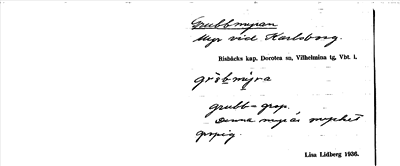 Grubbmyran
Myr vid Karlsborg.
Risbäcks kap. Dorotea sn, Vilhelmina tg, Vbt. l.
grubb = grop.
Denna myr är mycket
gropig.
Lisa Lidberg 1936.